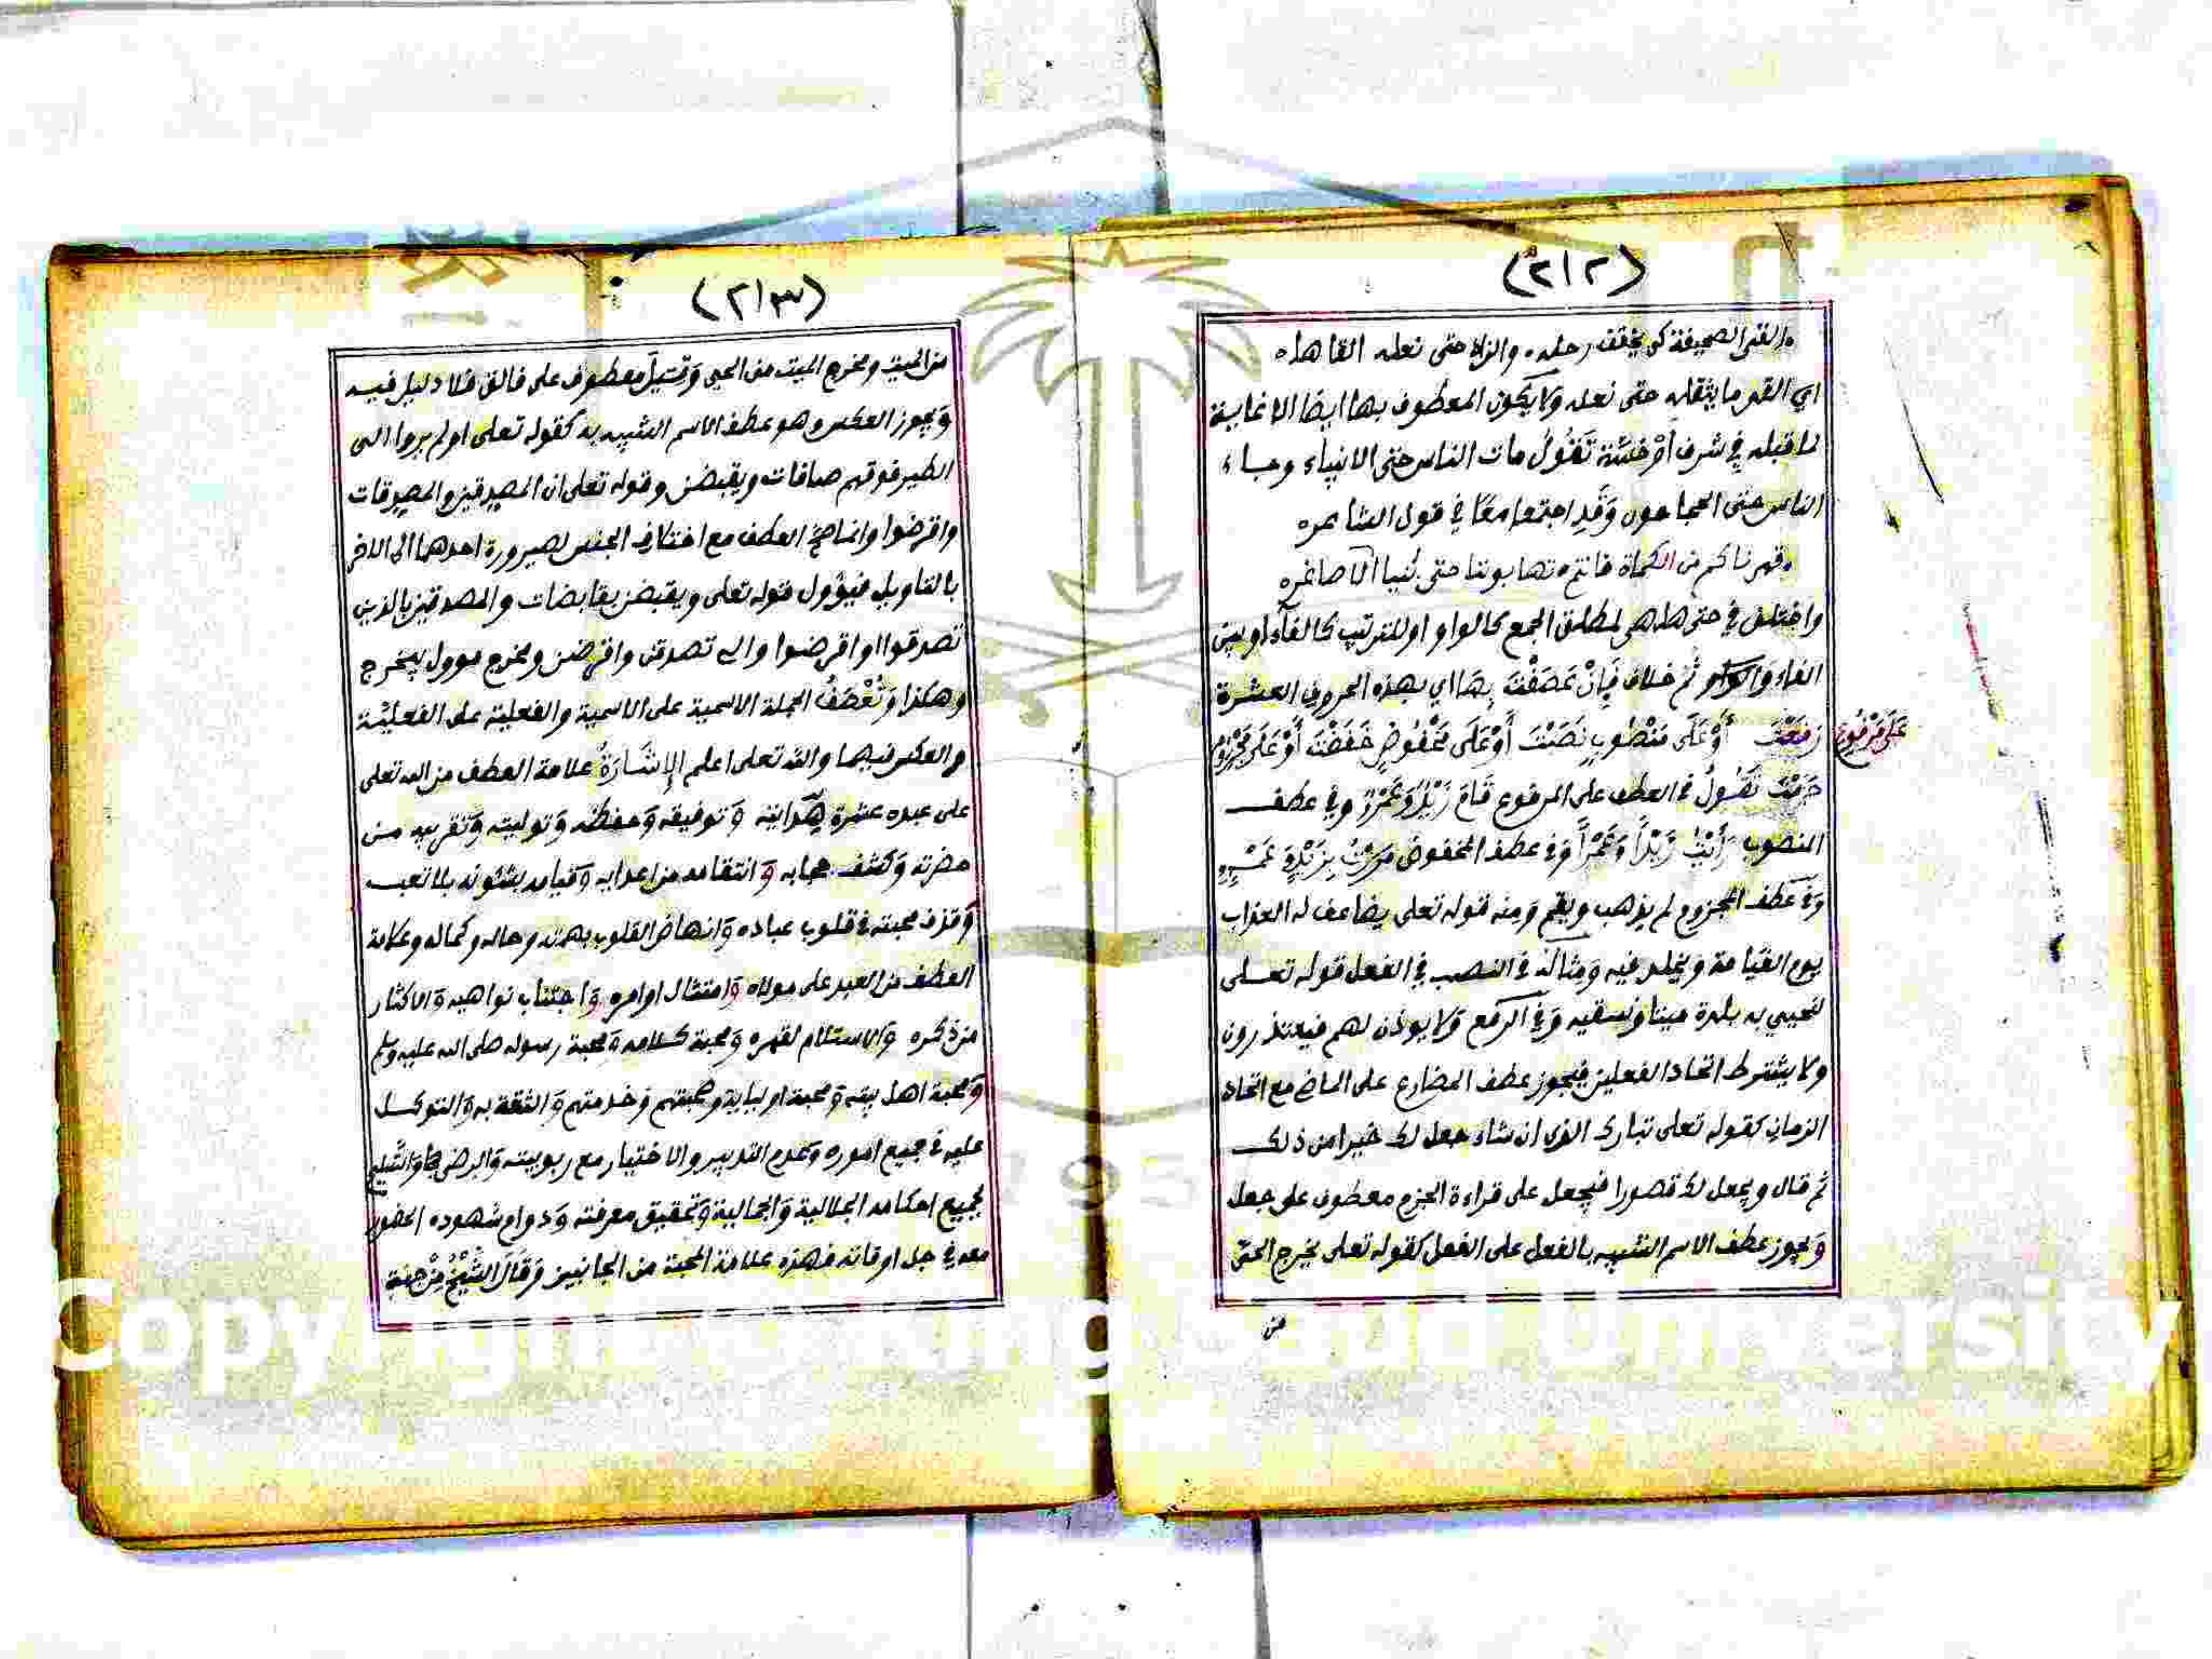 (٢١٢)
القى الصحيفة كي يخفف رحله والزاد حتى نعله القاها
اي القى ما يثقله حتى نعله ولا يكون المعطوف بها ايضا الا غاية
لما قبله في شرف أوْ خسّة تَقُولُ مات الناس حتى الانبياء وجاء
الناس حتى الحجامون وَقَدِ اجتمعا معًا في قول الشاعر
قهرناكم حتى الكماة فانتم تهابوننا حتى بَنينا الاصاغر
واختلف في حتى هل هي لمطلق الجمع كالواو او للترتيب كالفآء او بين
الفاء وثم خلاف فَإِنْ عَطَفْتَ بِهَا اي بهذه الحروف العشرة
عَلَى مَرْفُوعٍ
رَفَعْتَ أَوْ عَلَى مَنْصُوبٍ نَصَبْتَ أَوْ عَلَى مَخْفُوضٍ خَفَضْتَ أَوْ عَلَى مَجْزُومٍ
جَزَمْتَ تَقُولُ في العطف على المرفوع قَامَ زَيْدٌ وَعَمْرٌو وفي عطف
المنصوب رَأَيْتُ زَيْدًا وَعَمْرًا وَفي عطف المخفوض مَرَرْتُ بِزَيْدٍ وَعَمْرٍو
وَفي عَطف المجزوم لم يذهب ويقم وَمنه قوله تعلى يضاعف له العذاب
يوم القيامة ويخلد فيه وَمِثَاله في النصب في الفعل قوله تعلى
لنحيي به بلدة ميتا ونسقيه وَفي الرفع وَلا يوذن لهم فيعتذرون
ولا يشترط اتحاد الفعلين فيجوز عطف المضارع على الماضي مع اتحاد
الزمان كقوله تعلى تبارك الذى ان شاء جعل لك خيرا من ذلك
ثم قال ويجعل لك قصورا فيجعل على قراءة الجزم معطوف على جعل
وَيجوز عطف الاسم الشبيه بالفعل على الفعل كقوله تعلى يخرج الحيّ
من
(٢١٣)
من الميت ومخرج الميت من الحي وَقيلَ معطوف على فالق فلا دليل فيه
وَيجوز العكس وهو عطف الاسم الشبيه به كقوله تعلى اولم يروا الى
الطير فوقهم صافات ويقبضن وقوله تعلى ان المصدقين والمصدقات
واقرضوا وانما صح العطف مع اختلاف الجنس لصيرورة احدهما الى الاخر
بالتاويل فيؤول قوله تعلى ويقبضن بقابضات والمصدقين بالذين
تصدقوا واقرضوا تصدقن واقرضن ومخرج موول بيخرج
وهكذا وَتُعْطَفُ الجملة الاسمية على الاسمية والفعلية على الفعليّة
والعكس فيهما والله تعلى اعلم الإِشَارَةُ علامة العطف من الله تعلى
على عبده عشرة هدايته وَتوفيقه وَحفظه وَتوليته وَتقريبه من
حضرته وَكشف حجابه وَانتقامه من اعدايه وَقيامه بشئونه بلا تعب
وَقذف محبته في قلوب عباده وَانهاض القلوب بهمته وحاله وكماله وعلامة
العطف من العبد على مولاه وَامتثال اوامره وَاجتناب نواهيه وَالاكثار
من ذكره وَالاستلام لقهره وَمحبة كلامه وَمحبة رسوله صلى الله عليه وسلم
وَمحبة اهل بيته وَمحبة اوليايه وصحبتهم وَخدمتهم وَالثقة به وَالتوكل
عليه في جميع اموره وَعدم التدبير والاختيار مع ربوبيته وَالرضى
لجميع احكامه الجلالية وَالجمالية وَتحقيق معرفته وَدوام شهوده الحضور
معه في جل اوقاته فهذه علامة المحبة من الجانبين وَقَالَ الشَّيْخُ